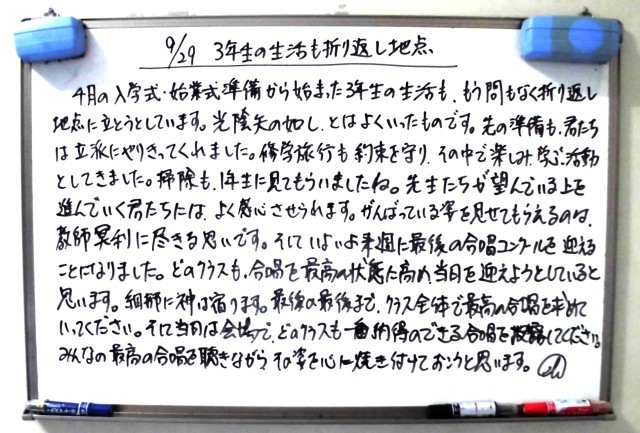 9/29 3年生の生活も折り返し地点、
4月の入学式・始業式準備から始まった3年生の生活も、もう間もなく折り返し
地点に立とうとしています。光陰矢の如し、とはよくいったものです。先の準備も、君たち
は立派にやりきってくれました。修学旅行も約束を守り、その中で楽しみ、学ぶ活動
としてきました。掃除も、1年生に見てもらいましたね。先生たちが望んでいる上を
進んでいく君たちには、よく感心させられます。がんばっている姿を見せてもらえるのは、
教師冥利に尽きる思いです。そしていよいよ来週に最後の合唱コンクールを迎える
ことになりました。どのクラスも、合唱を最高の状態に高め、当日を迎えようとしていると
思います。細部に神は宿ります。最後の最後まで、クラス全体で最高の合唱を求めて
いってください。そして当日は会場で、どのクラスも一番納得のできる合唱を披露してください。
みんなの最高の合唱を聴きながら、その姿を心に焼き付けておこうと思います。